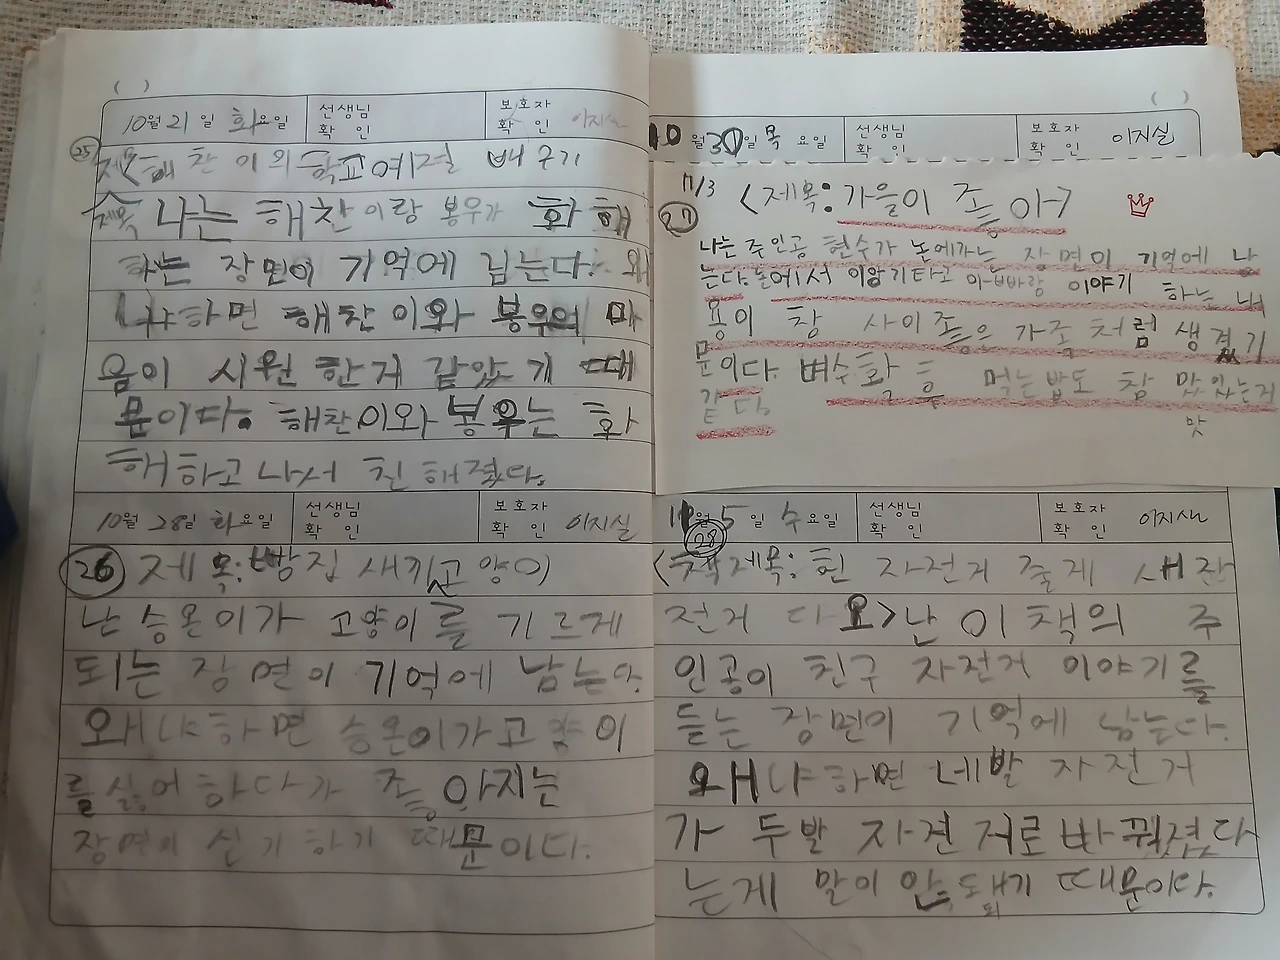 ( )
10월 21일 화요일 선생님 확인 보호자 확인 이지실
25 제목 해찬이의 학교예절 배우기
제목 나는 해찬이랑 봉우가 화해
하는 장면이 기억에 남는다. 왜
냐하면 해찬이와 봉우의 마
음이 시원한거 같았기 때
문이다. 해찬이와 봉우는 화
해하고 나서 친해졌다.
10월 28일 화요일 선생님 확인 보호자 확인 이지실
26 제목: 빵집 새끼고양이
난 승온이가 고양이를 기르게
되는 장면이 기억에 남는다.
왜냐하면 승온이가 고양이
를 싫어하다가 좋아지는
장면이 신기하기 때문이다.
( )
10월 30일 목요일 선생님 확인 보호자 확인 이지실
11/3 <제목: 가을이 좋아>
27
나는 주인공 현수가 논에가는 장면이 기억에 남
는다. 논에서 이앙기타고 아빠랑 이야기 하는 내
용이 참 사이좋은 가족처럼 생겼기
문이다. 벼수확 후 먹는밥도 참 맛있는거
같다. 맛
11월 5일 수요일 선생님 확인 보호자 확인
28
<책제목: 헌 자전거 줄게 새 자
전거 다오> 난 이 책의 주
인공이 친구 자전거 이야기를
듣는 장면이 기억에 남는다.
왜냐하면 네발 자전거
가 두발 자전저로 바꿔졌다
는게 말이 안 돼기 때문이다.
되